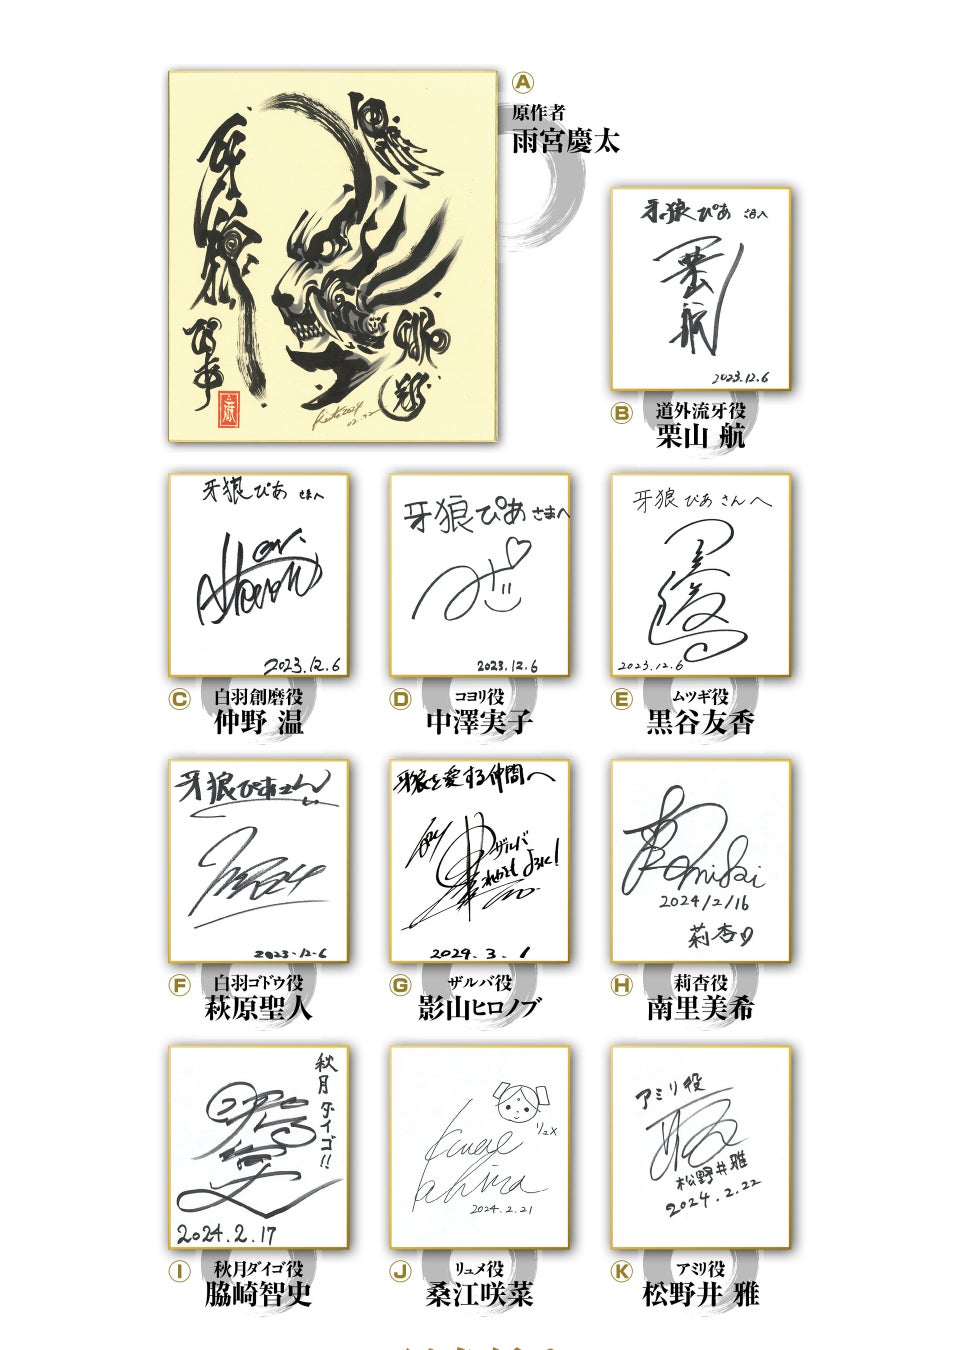 A
原作者
雨宮慶太
牙狼
ぴあ
Keita 2024
02.22
牙狼ぴあ さまへ
栗山航
2023.12.6
B 道外流牙役
栗山 航
牙狼ぴあ さまへ
2023.12.6
C 白羽創磨役
仲野 温
牙狼ぴあさまへ
2023.12.6
D コヨリ役
中澤実子
牙狼ぴあさんへ
2023.12.6
E ムツギ役
黒谷友香
牙狼ぴあさん
2023.12.6
F 白羽ゴドウ役
萩原聖人
牙狼を愛する仲間へ
ザルバ
これからも
よろしく!
3.1
G ザルバ役
影山ヒロノブ
2024/2/16
莉杏
H 莉杏役
南里美希
秋月
ダイゴ!!
2024.2.17
I 秋月ダイゴ役
脇崎智史
1/2X
2024.2.21
J リュメ役
桑江咲菜
アミリ役
松野井雅
2024.2.22
K アミリ役
松野井 雅